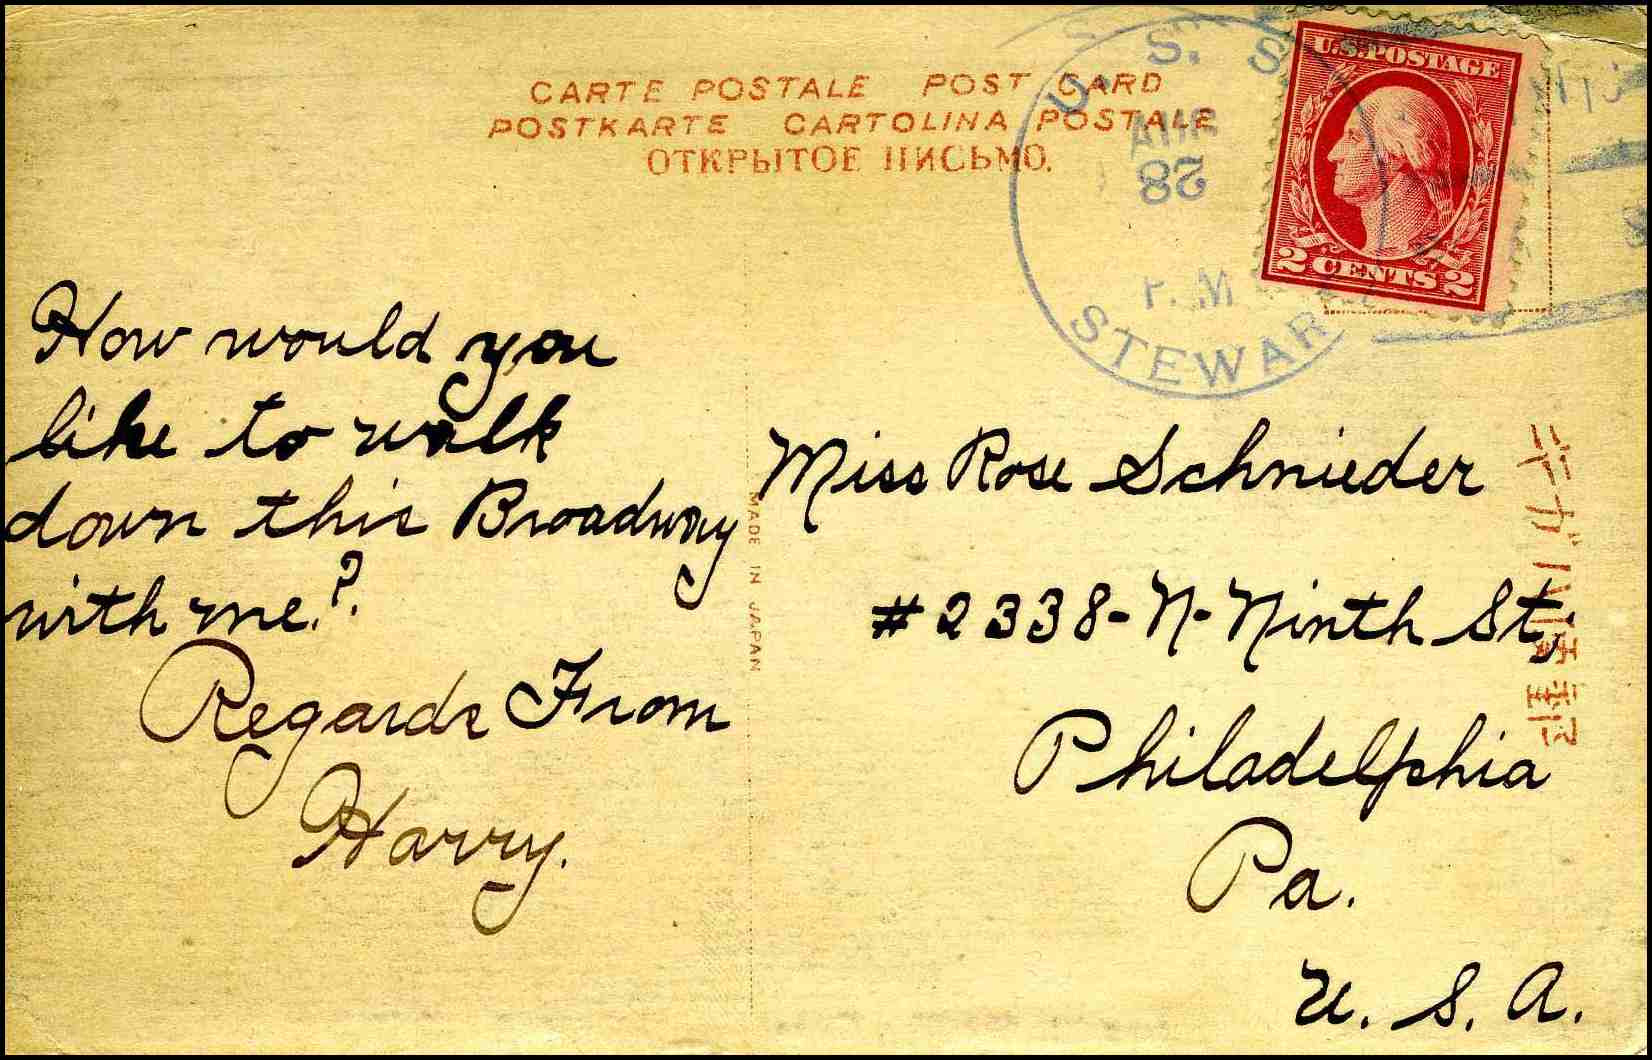 CARTE POSTALE POST CARD
POSTKARTE CARTOLINA POSTALE
ОТКРЫТОЕ ПИСЬМО.
U.S.POSTAGE
2 CENTS 2
U. S. S.
AUG
28
P.M
STEWAR
How would you
like to walk
down this Broadway
with me?.
Regards From
Harry.
MADE IN JAPAN
Miss Rose Schnieder
#2338-N-Ninth St,
Philadelphia
Pa.
U. S. A.